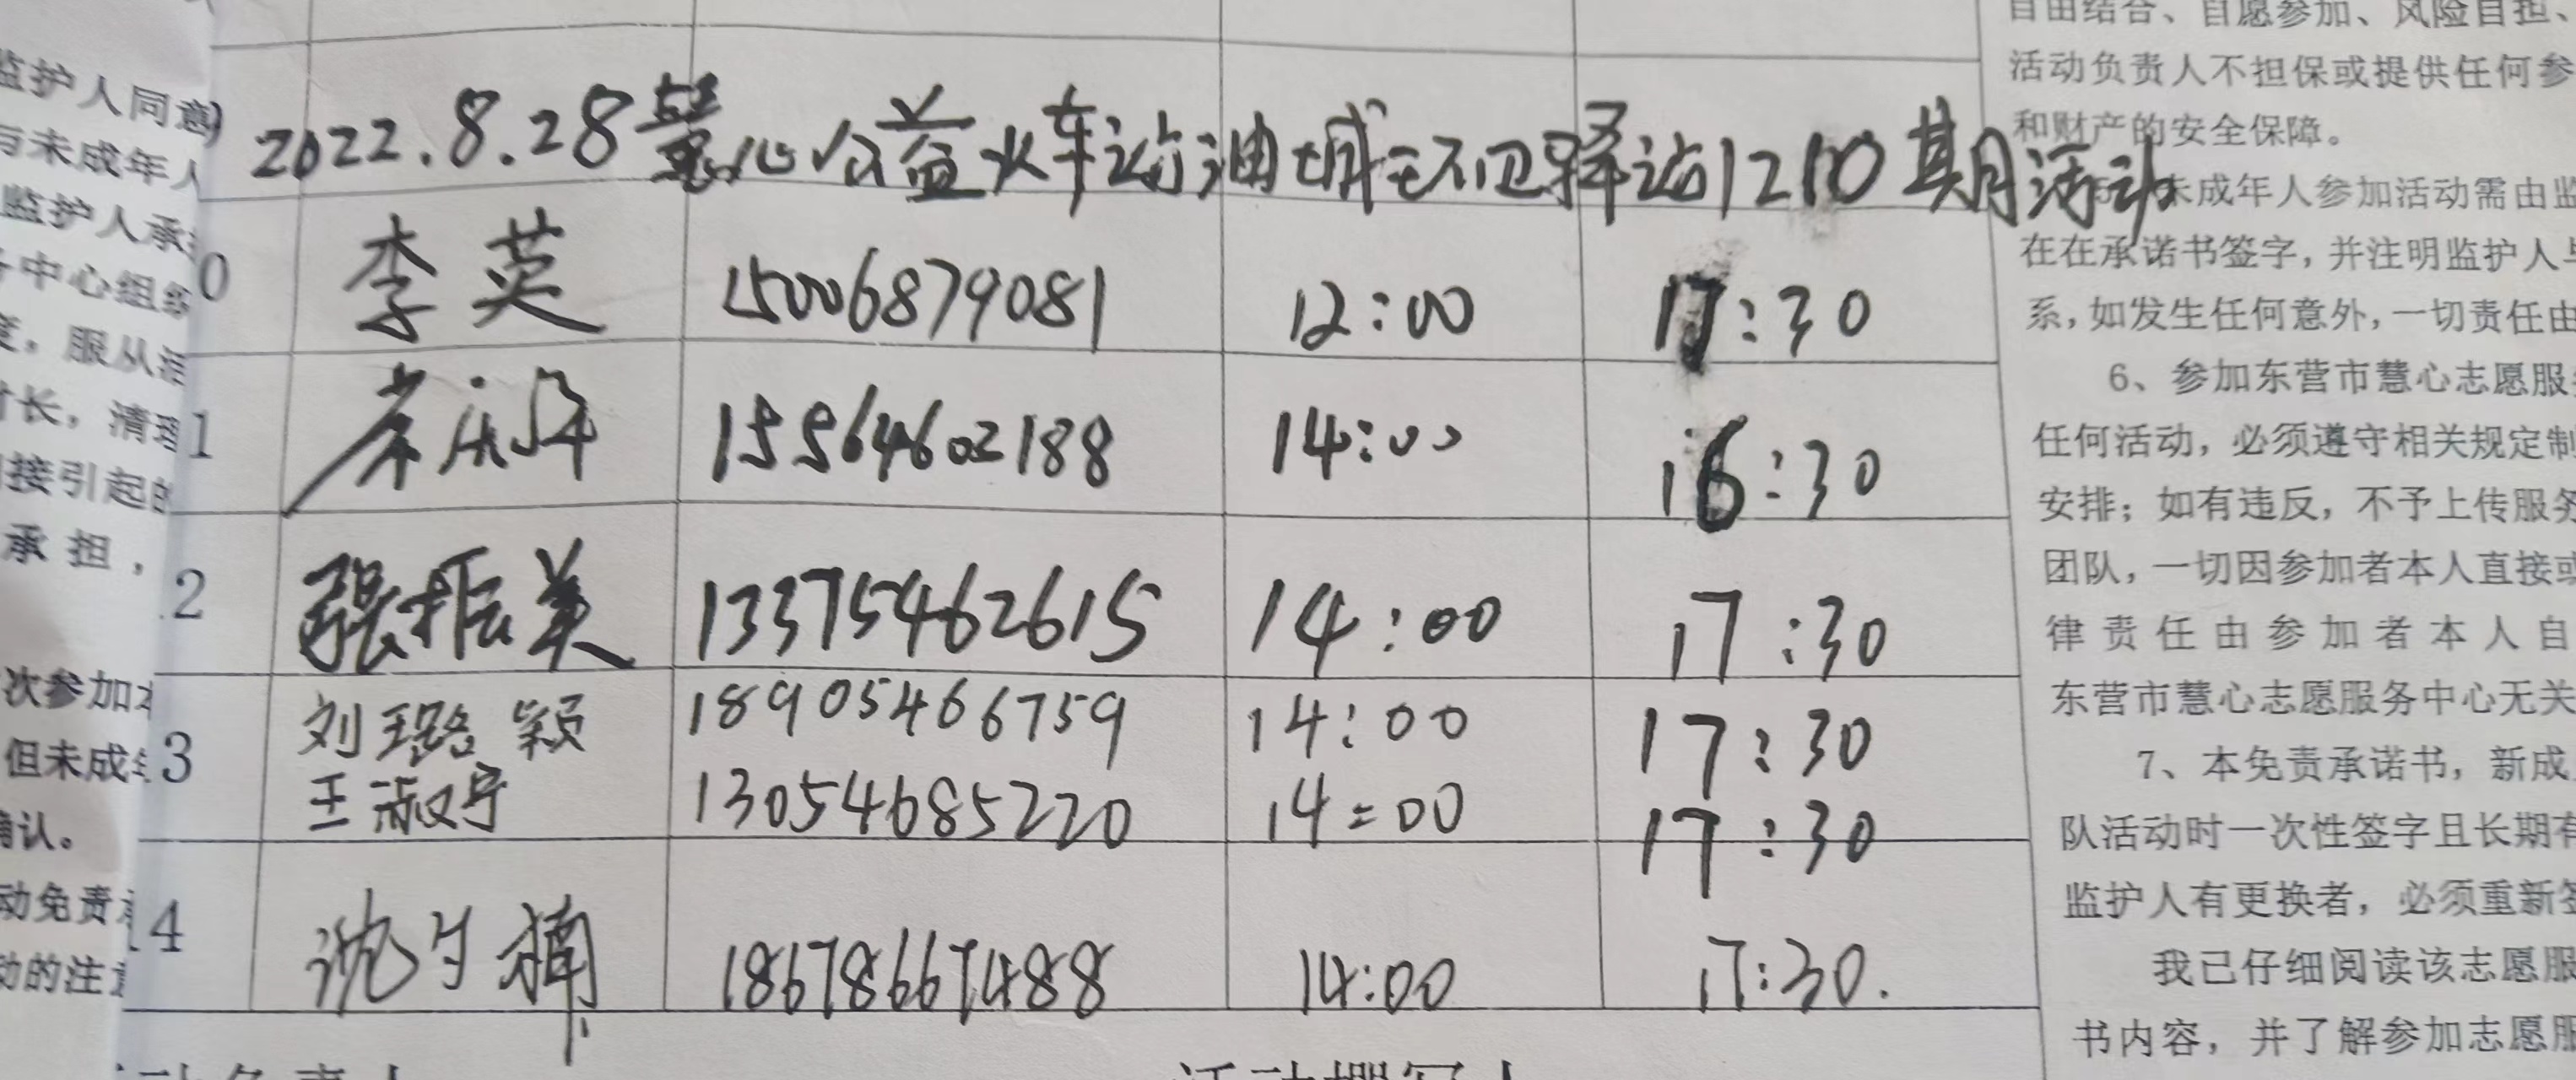 监护人同意)
与未成年人
监护人承
中心组织
服从活
时长，清理
接引起的
承担，
次参加本
但未成年
确认。
动免责
动的注意
2022.8.28慧心公益火车站油城环卫驿站1210期活动
0 李英 15006879081 12:00 17:30
1 15564602188 14:00 16:30
2 张振美 13375462615 14:00 17:30
3 刘璐颖 18905466759 14:00 17:30
王淑宁 13054685220 14:00 17:30
14 沈 楠 18678667488 14:00 17:30.
自由结合、自愿参加、风险自担、
活动负责人不担保或提供任何参
和财产的安全保障。
未成年人参加活动需由监
在在承诺书签字，并注明监护人与
系，如发生任何意外，一切责任由
6、参加东营市慧心志愿服
任何活动，必须遵守相关规定制
安排；如有违反，不予上传服务
团队，一切因参加者本人直接或
律责任由参加者本人自
东营市慧心志愿服务中心无关
7、本免责承诺书，新成
队活动时一次性签字且长期有
监护人有更换者，必须重新签
我已仔细阅读该志愿服
书内容，并了解参加志愿服